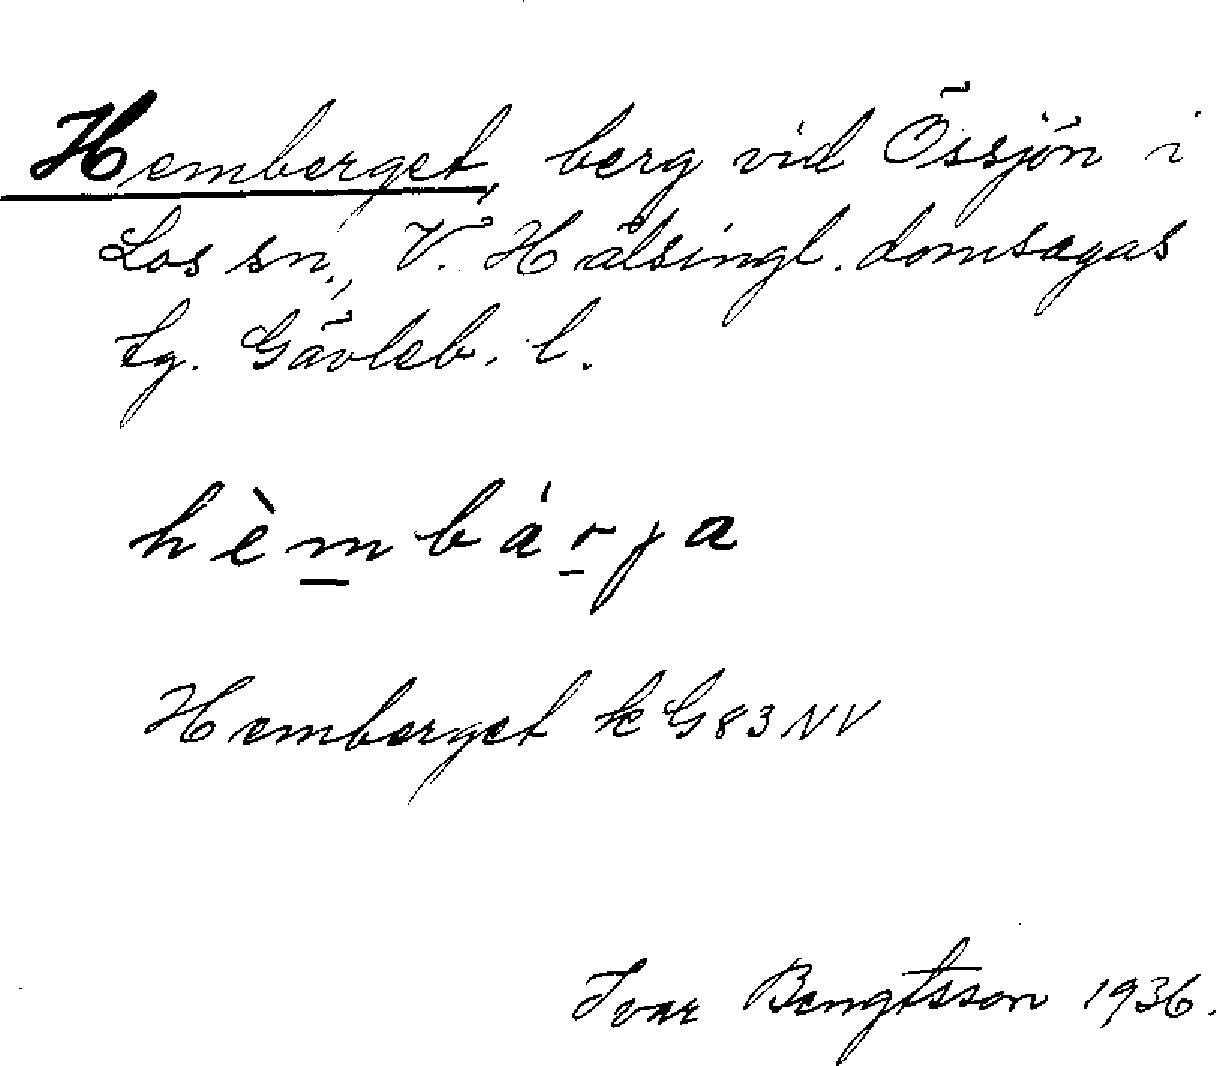 Hemberget, berg vid Össjön i
Los sn., V. Hälsingl. domsagas
tg. Gävleb. l.
hèmbárja
Hemberget k G83NV
Ivar Bengtsson 1936.